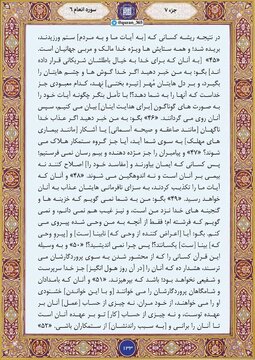 جزء ۷
سوره انعام ۶
در نتیجه ریشه کسانی که [به آیات ما و به مردم] ستم ورزیدند،
بریده شد؛ و همه ستایش ها ویژه خدا مالک و مربی جهانیان است.
«۴۵» [به آنان که برای خدا به خیال باطلشان شریکانی قرار داده
اند] بگو: به من خبر دهید اگر خدا گوش ها و چشم هایتان را
بگیرد، و بر دل هایتان مُهرِ [تیره بختی] نهد، کدام معبودی جز
خداست که آنها را به شما دهد؟! با تأمل بنگر چگونه آیات خود را
به صورت های گوناگون [برای هدایت اینان] بیان می کنیم، سپس
آنان روی می گردانند. «۴۶» بگو: به من خبر دهید اگر عذاب خدا
ناگهان [مانند صاعقه و صیحه آسمانی] یا آشکار [مانند بیماری
های مهلک] به سوی شما آید، آیا جز گروه ستمکار هلاک می
شوند؟ «۴۷» و پیامبران را جز مژده دهنده و بیم رسان نمی فرستیم؛
پس کسانی که ایمان بیاورند و [مفاسد خود را] اصلاح کنند نه
بیمی بر آنان است و نه اندوهگین می شوند. «۴۸» و آنان که
آیات ما را تکذیب کردند، به سزای نافرمانی هایشان عذاب به آنان
خواهد رسید. «۴۹» بگو: من به شما نمی گویم که خزینه ها و
گنجینه های خدا نزد من است، و نیز غیب هم نمی دانم، و نمی
گویم که فرشته ام؛ فقط از آنچه به من وحی شده پیروی می
کنم. بگو: آیا [اعراض کننده از وحی که] نابینا [ست] و [پیرو وحی
که] بینا [ست] یکسانند؟! پس چرا نمی اندیشید؟! «۵۰» و به وسیله
این قرآن کسانی را که از محشور شدن به سوی پروردگارشان می
ترسند، هشدار ده که آنان را [در آن روز هول انگیز] جز خدا سرپرست
و شفیعی نخواهد بود؛ باشد که بپرهیزند. «۵۱» و آنان که بامدادان
و شامگاهان پروردگارشان را می خوانند [و با این خواندن] خشنودی
او را می خواهند، از خود مران، نه چیزی از حساب [عمل] آنان بر
عهده توست، و نه چیزی از حساب [کار] تو بر عهده آنان است
تا آنان را برانی و [به سبب راندنشان] از ستمکاران باشی. «۵۲»
۱۳۳